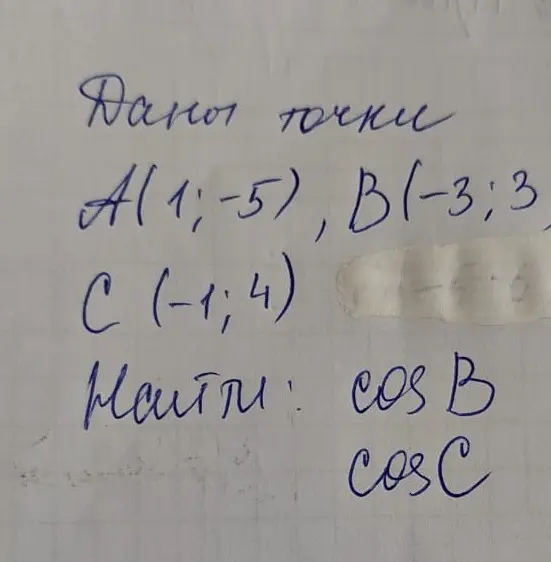 Даны точки
A(1;-5), B(-3;3,
C (-1;4)
Найти: cos B
cos C